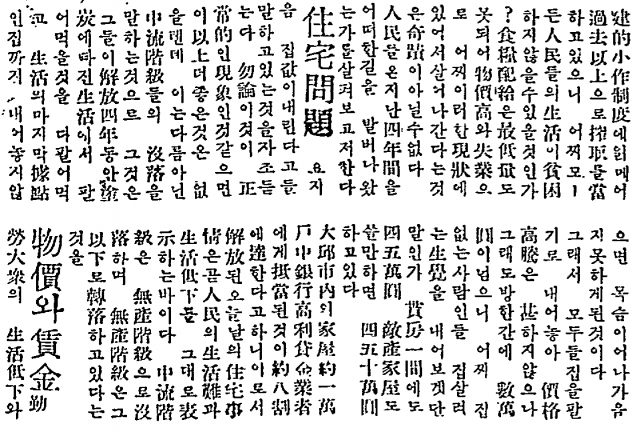 建的小作制度에얽매어
過去以上으로搾取를當
하고있으니 어찌모ー
든人民들의生活이貧困
하지않을수있을것인가
?食糧配給은最低量도
못되어物價高와失業으
로 어찌이러한現狀에
있어서살어나간다는것
은奇蹟이아닐수없다
人民들은지난四年間을
어떠한길을 밟버나왔
는가를살펴보고저한다
住宅問題 요지
음 집값이내린다고들
말하고있는것을자조듣
는다 勿論이것이 正
常的인現象인것같으면
이以上더좋은것은 없
을텐데 이는다름아닌
中流階級들의 沒落을
말하는것으로 그것은
그들이解放四年동안塗
炭에빠진生活에서 팔
어먹을것을 다팔어먹
고 生活의마지막據點
인집까지 내어놓지않
으면 목숨이어나가음
지못하게된것이다
그래서 모두들집을팔
기로 내어놓아 價格
高騰은 甚하지않으나
그래도방한간에 數萬
圓이넘으니 어찌 집
없는사람인들 집살려
는生覺을 내어보겟단
말인가 貰房一間에도
四五萬圓 敵産家屋도
쓸만하면 四五十萬圓
하고있다
大邱市內의家屋約一萬
戶中銀行高利貸金業者
에게抵當된것이約八割
에達한다고하니이로서
解放된오늘날의住宅事
情은곧人民의生活難과
生活低下를 그대로表
示하는바이다 中流階
級은 無産階級으로沒
落하며 無産階級은그
以下로轉落하고있다는
것을
物價와賃金 勤
勞大衆의 生活低下와